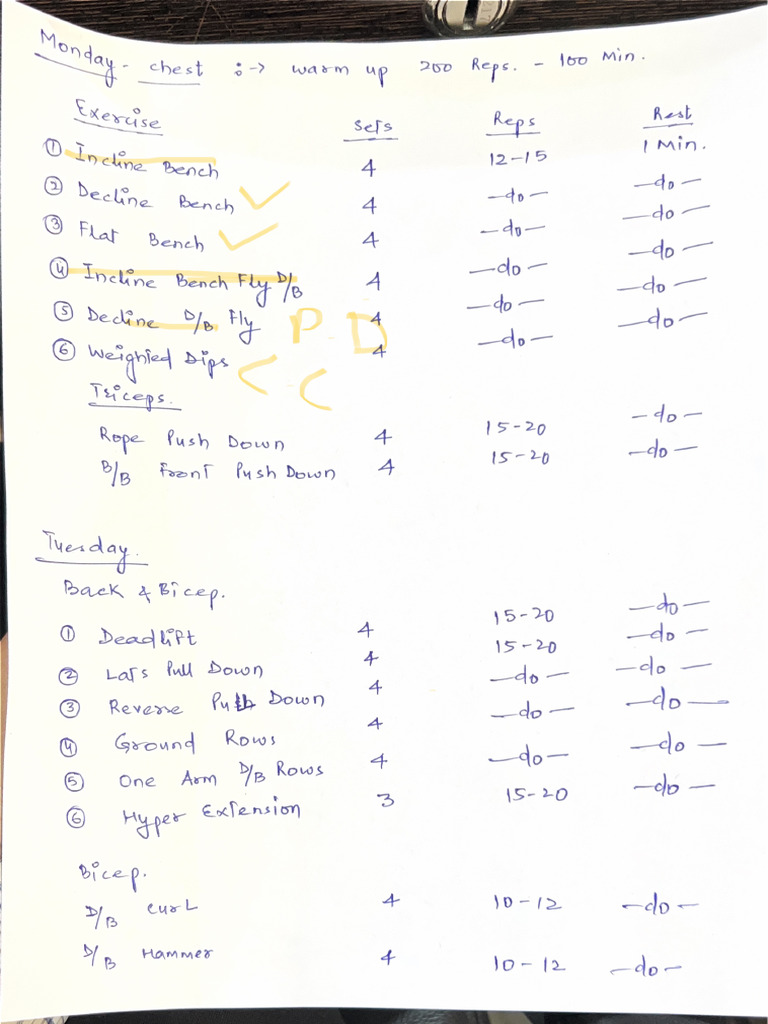 Monday - chest :-> warm up 200 Reps. - 100 Min.
Exercise Sets Reps Rest
① Incline Bench 4 12-15 1 Min.
② Decline Bench ✓ 4 -do- -do-
③ Flat Bench ✓ 4 -do- -do-
④ Incline Bench Fly D/B 4 -do- -do-
⑤ Decline D/B Fly 4 -do- -do-
⑥ Weighted Dips 4 -do- -do-
P D
C
Triceps.
Rope Push Down 4 15-20 -do-
B/B Front Push Down 4 15-20 -do-
Tuesday.
Back & Bicep.
① Deadlift 4 15-20 -do-
② Lats Pull Down 4 15-20 -do-
③ Reverse Pull Down 4 -do- -do-
④ Ground Rows 4 -do- -do-
⑤ One Arm D/B Rows 4 -do- -do-
⑥ Hyper Extension 3 15-20 -do-
Bicep.
D/B curL 4 10-12 -do-
D/B Hammer 4 10-12 -do-